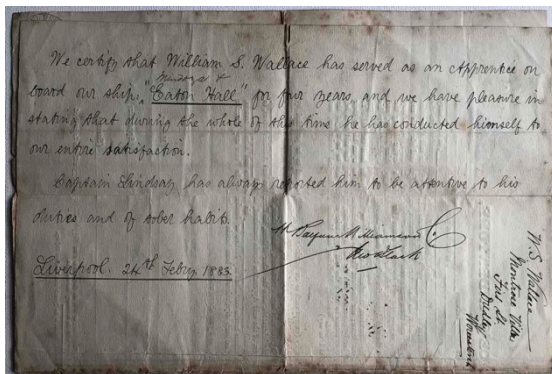 We certify that William S. Wallace has served as an Apprentice on
board our ship, "Eaton Hall" for four years, and we have pleasure in
stating that during the whole of this time he has conducted himself to
our entire satisfaction.
Captain Lindsay has always reported him to be attentive to his
duties and of sober habits.
Liverpool. 24th Febry 1883
W. S. Wallace
Montrose Villa
Dudley